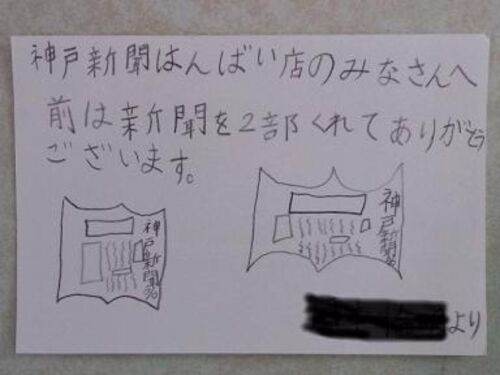 神戸新聞はんばい店のみなさんへ
前は新聞を2部くれてありがとう
ございます。
神戸新聞
神戸新聞
より